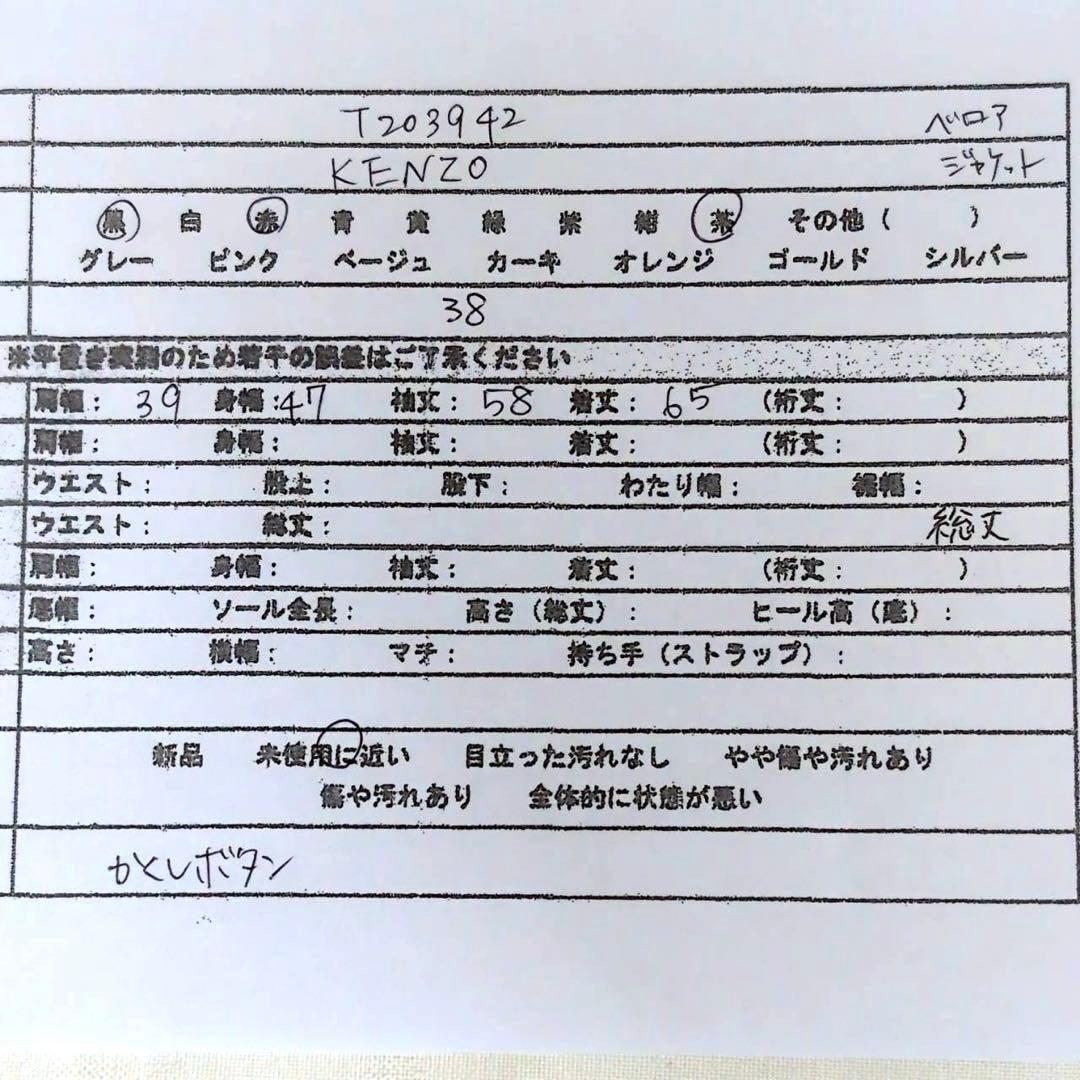 T203942 ベロア
KENZO ジャケット
黒 白 赤 青 黄 緑 紫 紺 茶 その他( )
グレー ピンク ベージュ カーキ オレンジ ゴールド シルバー
38
※平置き実測のため若干の誤差はご了承ください
肩幅: 39 身幅:47 袖丈: 58 着丈: 65 (裄丈: )
肩幅: 身幅: 袖丈: 着丈: (裄丈: )
ウエスト: 股上: 股下: わたり幅: 裾幅:
ウエスト: 総丈: 総丈
肩幅: 身幅: 袖丈: 着丈: (裄丈: )
底幅: ソール全長: 高さ(総丈): ヒール高(底):
高さ: 横幅: マチ: 持ち手(ストラップ):
新品 未使用に近い 目立った汚れなし やや傷や汚れあり
傷や汚れあり 全体的に状態が悪い
かくしボタン